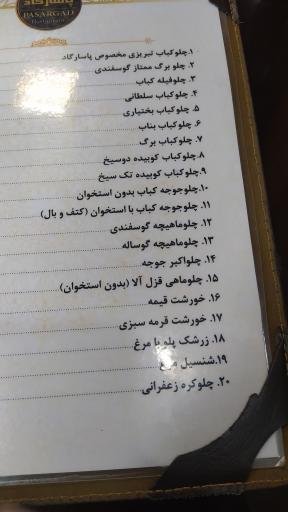 پاسارگاد
PASARGAD
Restaurant
۱. چلوکباب تبریزی مخصوص پاسارگاد
۲. چلو برگ ممتاز گوسفندی
۳. چلوفیله کباب
۴. چلوکباب سلطانی
۵. چلوکباب بختیاری
۶. چلوکباب بناب
۷. چلوکباب برگ
۸. چلوکباب کوبیده دوسیخ
۹. چلوکباب کوبیده تک سیخ
۱۰. چلوجوجه کباب بدون استخوان
۱۱. چلوجوجه کباب با استخوان (کتف و بال)
۱۲. چلوماهیچه گوسفندی
۱۳. چلوماهیچه گوساله
۱۴. چلواکبر جوجه
۱۵. چلوماهی قزل آلا (بدون استخوان)
۱۶. خورشت قیمه
۱۷. خورشت قرمه سبزی
۱۸. زرشک پلو با مرغ
۱۹. شنسیل مرغ
۲۰. چلوکره زعفرانی